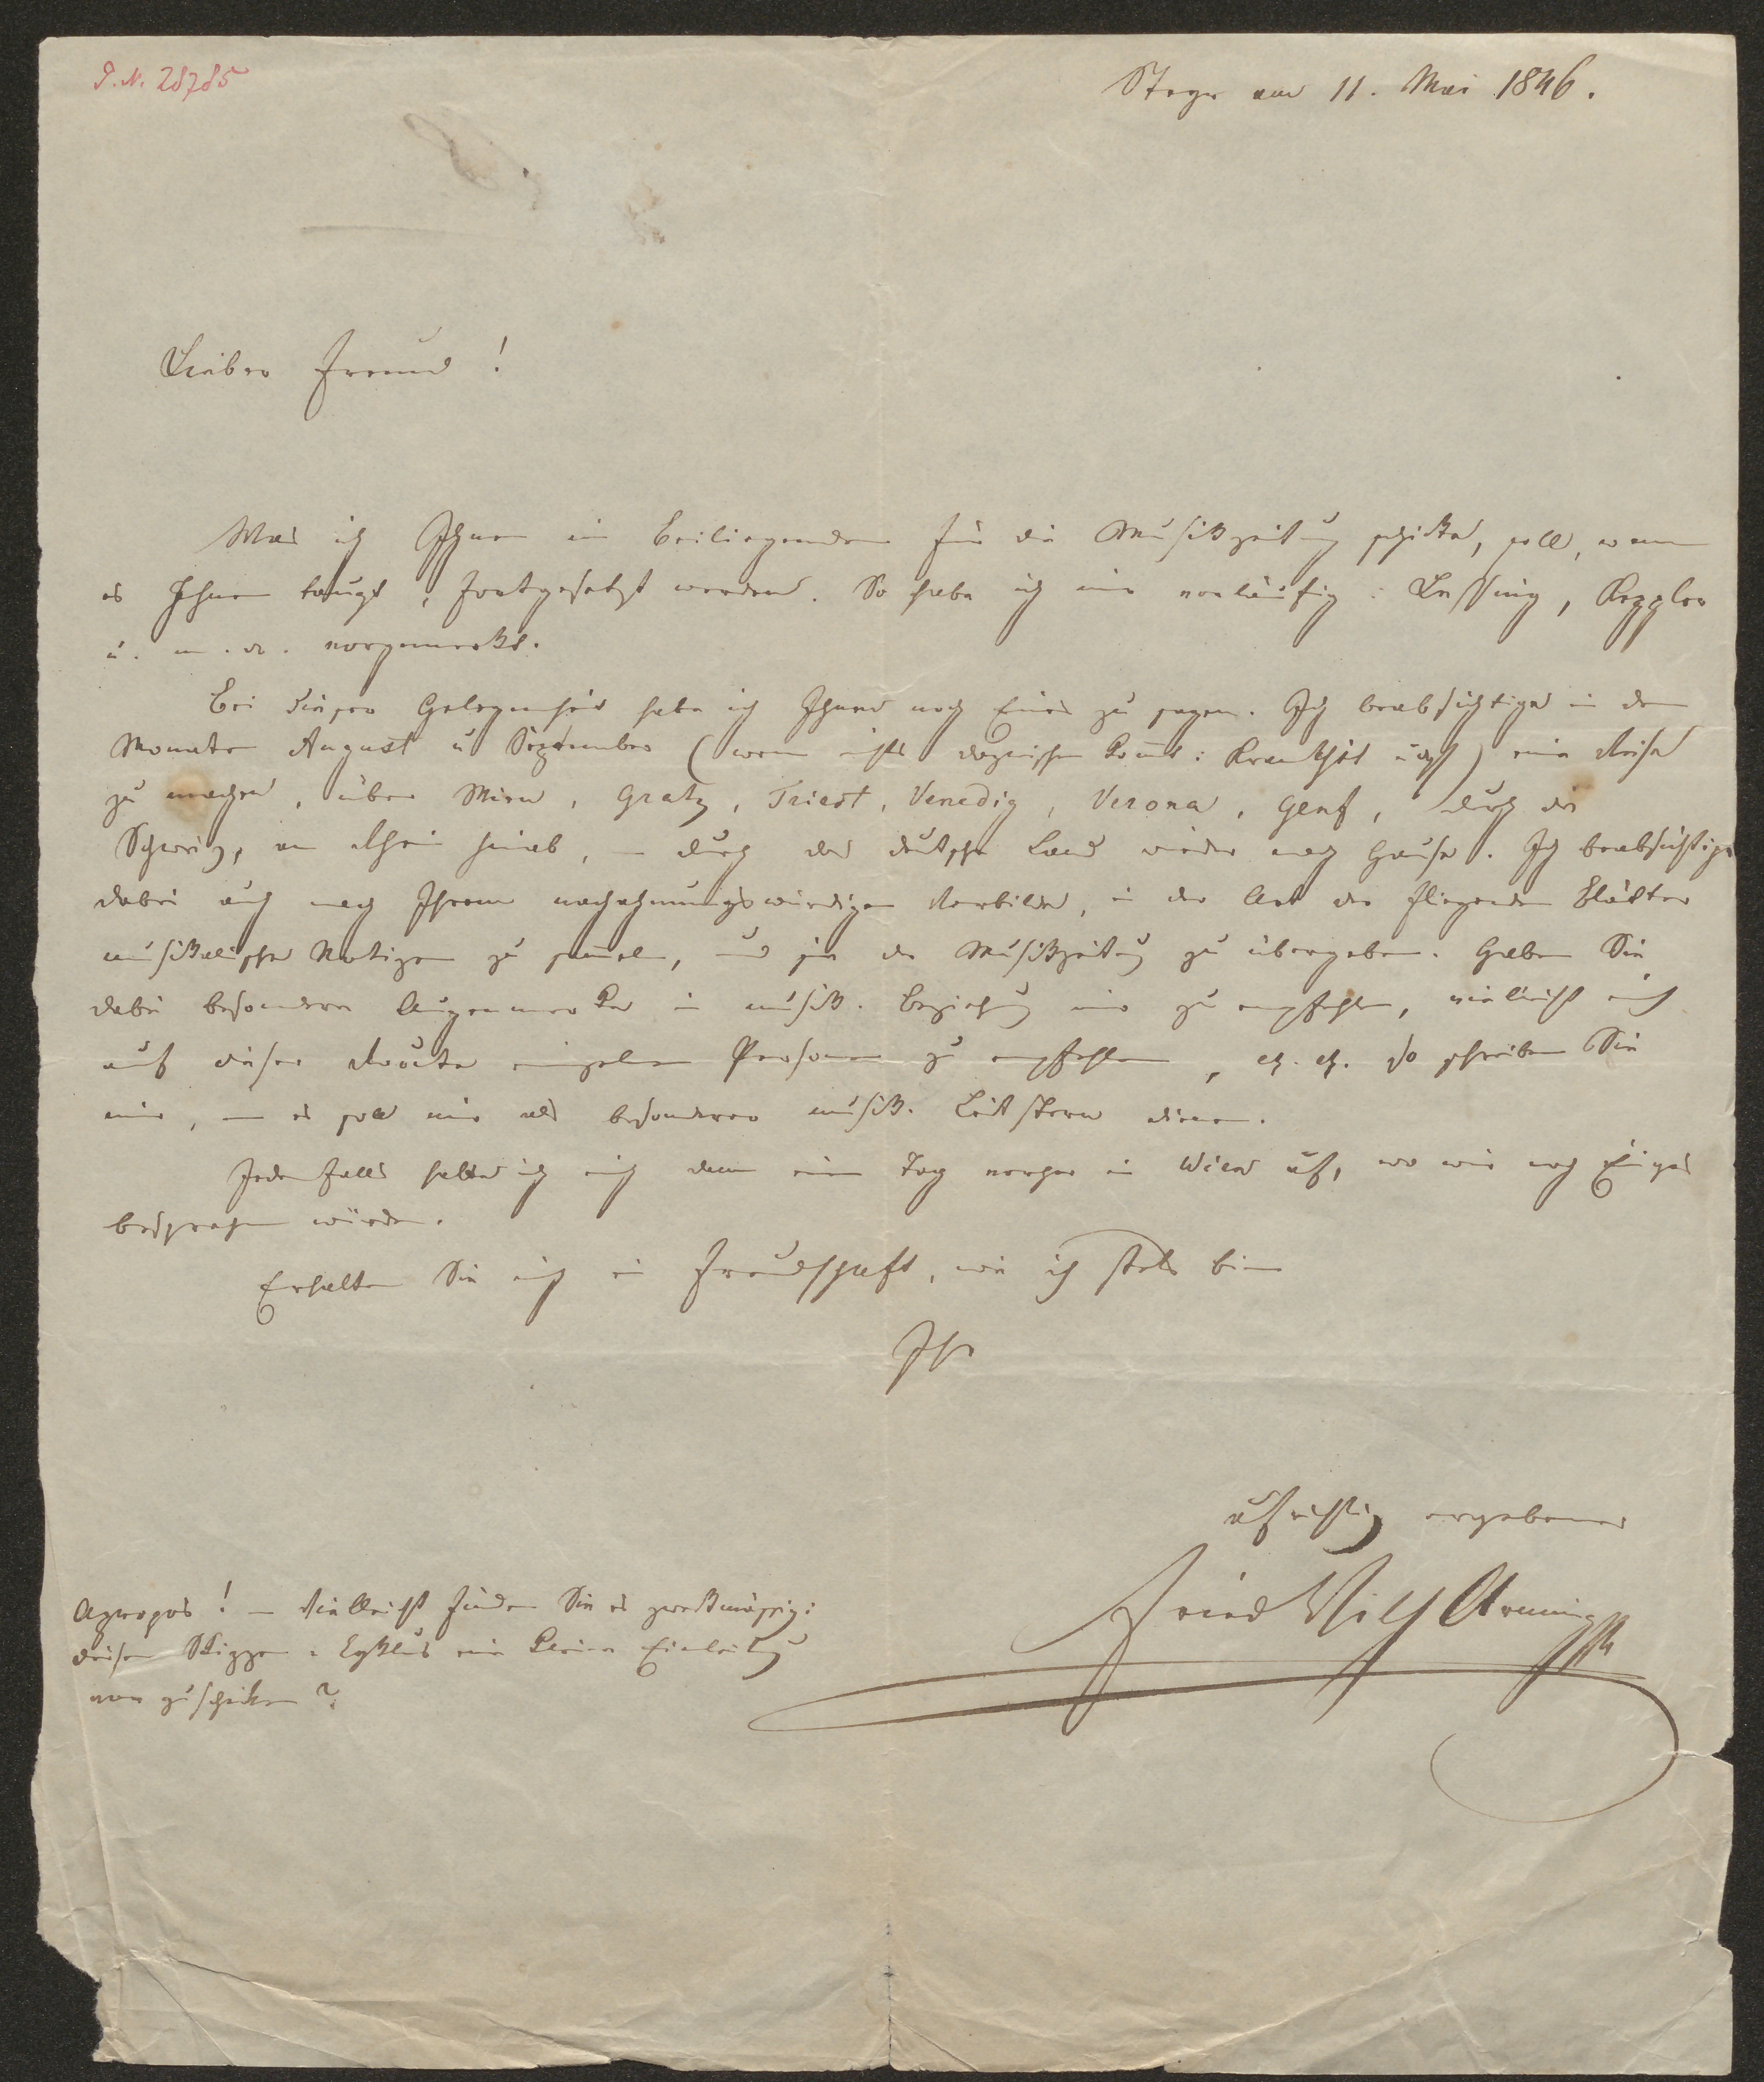 I. N. 28785
Steyr am 11. Mai 1846.
Lieber Freund!
Was ich Ihnen im Beiliegenden für die Musikzeitung schicke, soll, wenn
es Ihnen taugt, fortgesetzt werden. So habe ich mir vorläufig: Lessing, Keppler
u. m. a. vorgemerkt.
Bei dieser Gelegenheit habe ich Ihnen noch Eines zu sagen. Ich beabsichtige in den
Monaten August u September (wenn nichts dazwischen kom̄t: Krankheit udgl) eine Reise
zu machen, über Wien, Gratz, Triest, Venedig, Verona, Genf, durch die
Schweiz, am Rhein hinab, – durch das deutsche Land wieder nach Hause. Ich beabsichtige
dabei auch nach Ihrem nachahmungswürdigen Vorbilde, in der Art der fliegenden Blätter
musikalische Notizen zu sam̄eln, und sie der Musikzeitung zu übergeben. Haben Sie
dabei besondere Augenmerke in musik. Beziehung mir zu empfehlen, vielleicht mich
auf dieser Route einzelnen Personen zu empfehlen, so schreiben Sie
mir, – es soll mir als besonderer musik. Leitstern dienen.
Jedenfalls halte ich mich dann einen Tag vorher in Wien auf, wo wir noch Einiges
besprechen würden.
Erhalten Sie mich in Freundschaft, wie ich stets bin
Ihr
aufrichtig ergebener
Fried Wilh Arming
Apropos! – Vielleicht finden Sie es zweckmässig:
diesem Skizzen-Cyklus eine kleine Einleitung
voran zuschicken?